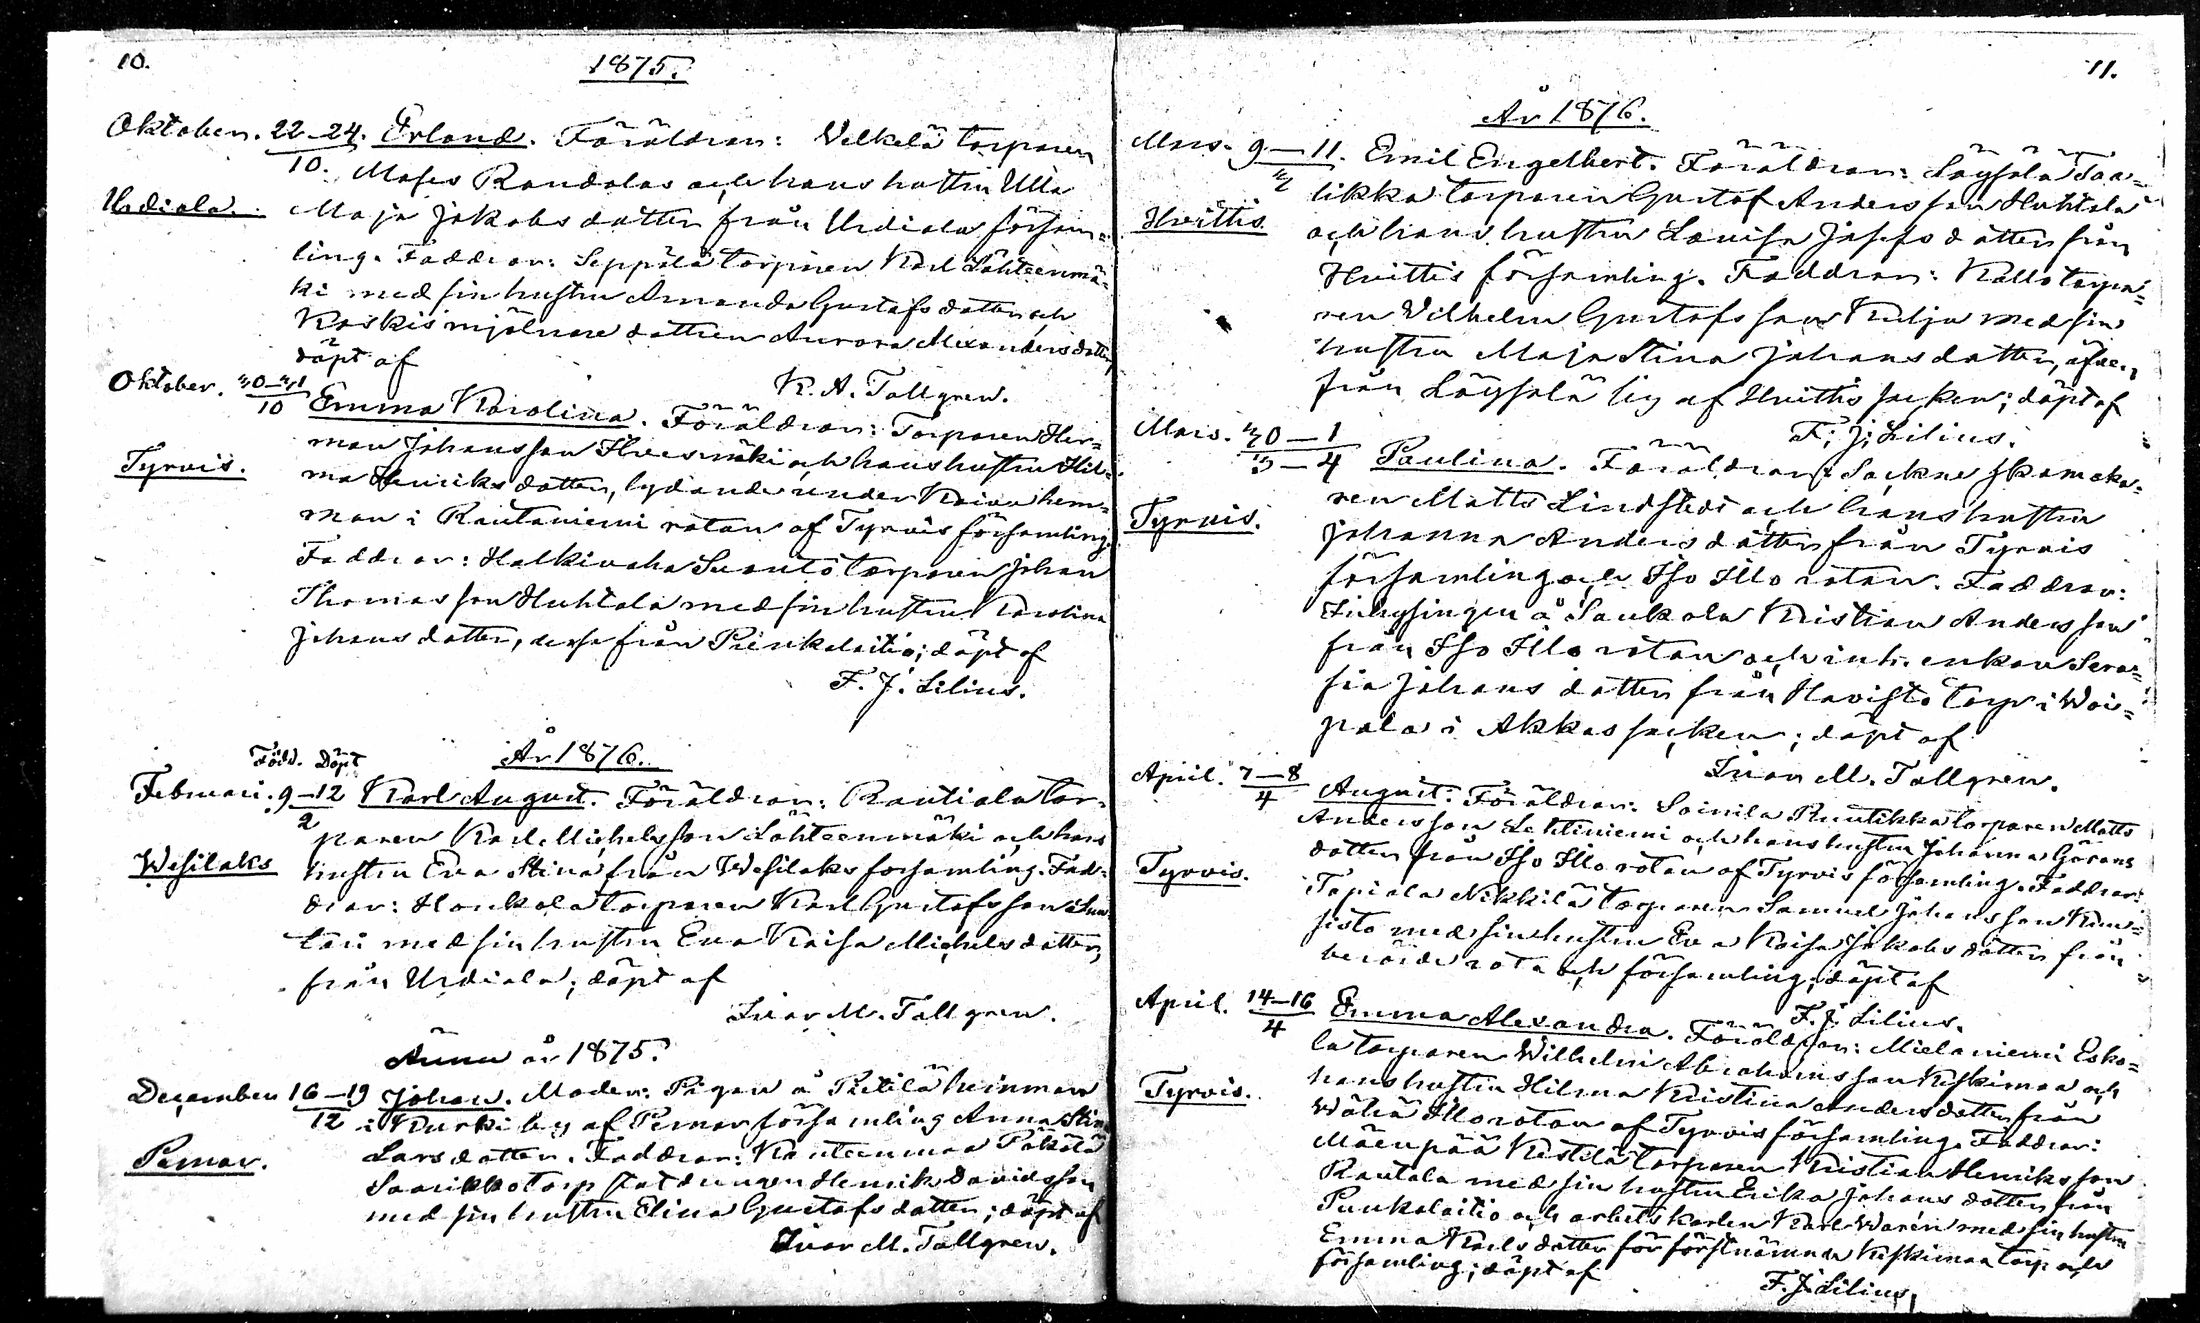 10.
1875.
Oktober. 22–24. Erland. Föräldrar: Velkelä torparen
10. Moses Randalas och hans hustru Ulla
Urdiala. Maja Jakobsdotter från Urdiala försam=
ling. Faddrar: Seppälä torparen Karl Lähteenmä=
ki med sin hustru Amanda Gustafsdotter och
Koskis mjölnare dottren Aurora Alexandersdotter,
döpt af
K. A. Tallgren.
Oktober. 30–31
10 Emma Karolina. Föräldrar: Torparen Her=
man Johansson Ilvesmäki och hans hustru Hil=
Tyrvis. ma Henriksdotter, lydande under Kaiva hem=
man i Rautaniemi rotan af Tyrvis församling.
Faddrar: Halkivaha Suonto torparen Johan
Thomasson Huhtala med sin hustru Karolina
Johansdotter, dessa från Punkalaitio; döpt af
F. J. Lilius.
År 1876.
Född. Döpt
Februari. 9–12 Karl August. Föräldrar: Rautiala tor=
2
paren Karl Michelsson Lähteenmäki och hans
Wesilaks hustru Eva Stina från Wesilaks församling. Fad=
drar: Honkola torparen Karl Gustafsson Sun
täi med sin hustru Eva Kaisa Michelsdotter,
från Urdiala; döpt af
Ivar M. Tallgren.
Ännu år 1875.
December 16–19 Johan. Moder: Pigan å Pietilä hemman
12 i Kurki by af Pemar församling Anna Stina
Pemar. Larsdotter. Faddrar: Kanteenmaa Päkälä
Saarikko torp statdrängen Henrik Davidsson
med sin hustru Elina Gustafsdotter; döpt af
Ivar M. Tallgren.
11.
År 1876.
Mars. 9–11. Emil Engelbert. Föräldrar: Löysälä Taa=
3
likka torparen Gustaf Andersson Huhtala
Hvittis. och hans hustru Lovisa Josefsdotter från
Hvittis församling. Faddrar: Kallo torpa=
ren Wilhelm Gustafsson Kulju med sin
hustru Maja Stina Johansdotter, äfven
från Löysälä by af Hvittis socken; döpt af
F. J. Lilius.
Mars. 30–1
3–4 Paulina. Föräldrar: Sockne skomaka=
ren Matts Lindstedt och hans hustru
Tyrvis. Johanna Andersdotter från Tyrvis
församling och Iso Illo rotan. Faddrar:
Inhysingen å Saukola Kristian Andersson
från Iso Illo rotan och inh. enkan Sera=
fia Johansdotter från Havisto torp i Woi=
pala i Akkas socken; döpt af
Ivar M. Tallgren.
April. 7–8
4 August. Föräldrar: Soinila Ruutikka torparen Matts
Andersson Lehtiniemi och hans hustru Johanna Görans
Tyrvis. dotter från Iso Illo rotan af Tyrvis församling. Faddrar:
Tapiola Nikkilä torparen Samuel Johansson Kuu=
sisto med sin hustru Eva Kaisa Jakobsdotter från
berörde rota och församling; döpt af
F. J. Lilius.
April. 14–16
4 Emma Alexandra. Föräldrar: Mielaniemi Esko=
la torparen Wilhelm Abrahamsson Kiskimaa och
Tyrvis. hans hustru Hilma Kristina Andersdotter från
Wähä Illo rotan af Tyrvis församling. Faddrar:
Mäenpää Kestilä torparen Kristian Henriksson
Rautala med sin hustru Erika Johansdotter från
Punkalaitio och arbetskarlen Karl Warén med sin hustru
Emma Karlsdotter för förstnämnda Kiskimaa torp och
församling; döpt af
F. J. Lilius,